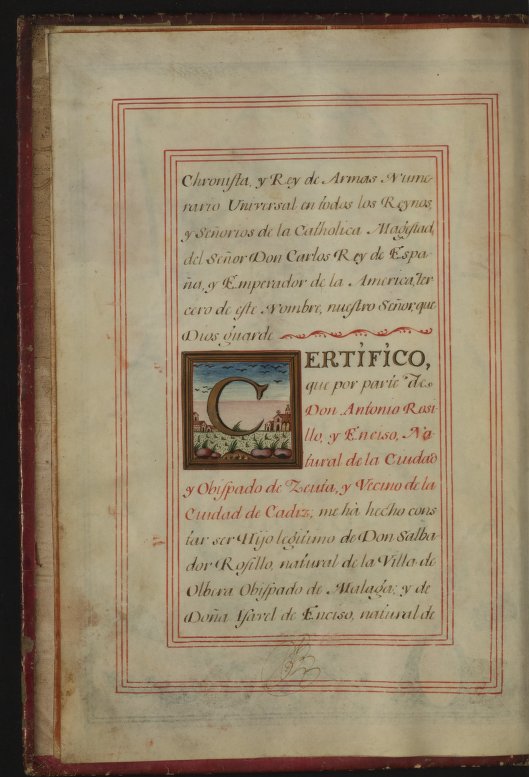 Chronista, y Rey de Armas Nume-
rario Universal en todos los Reynos,
y Señorios de la Catholica Magestad,
del Señor Don Carlos Rey de Espa-
ña, y Emperador de la America, ter-
cero de este Nombre, nuestro Señor, que
Dios guarde
CERTIFICO,
que por parte de
Don Antonio Rosi
llo, y Enciso, Na
tural de la Ciudad
y Obispado de Zeuta, y Vecino de la
Ciudad de Cadiz; me hà hecho cons
tar ser Hijo legitimo de Don Salba
dor Rosillo, natural de la Villa de
Olbera Obispado de Malaga; y de
Doña Ysavel de Enciso, natural de